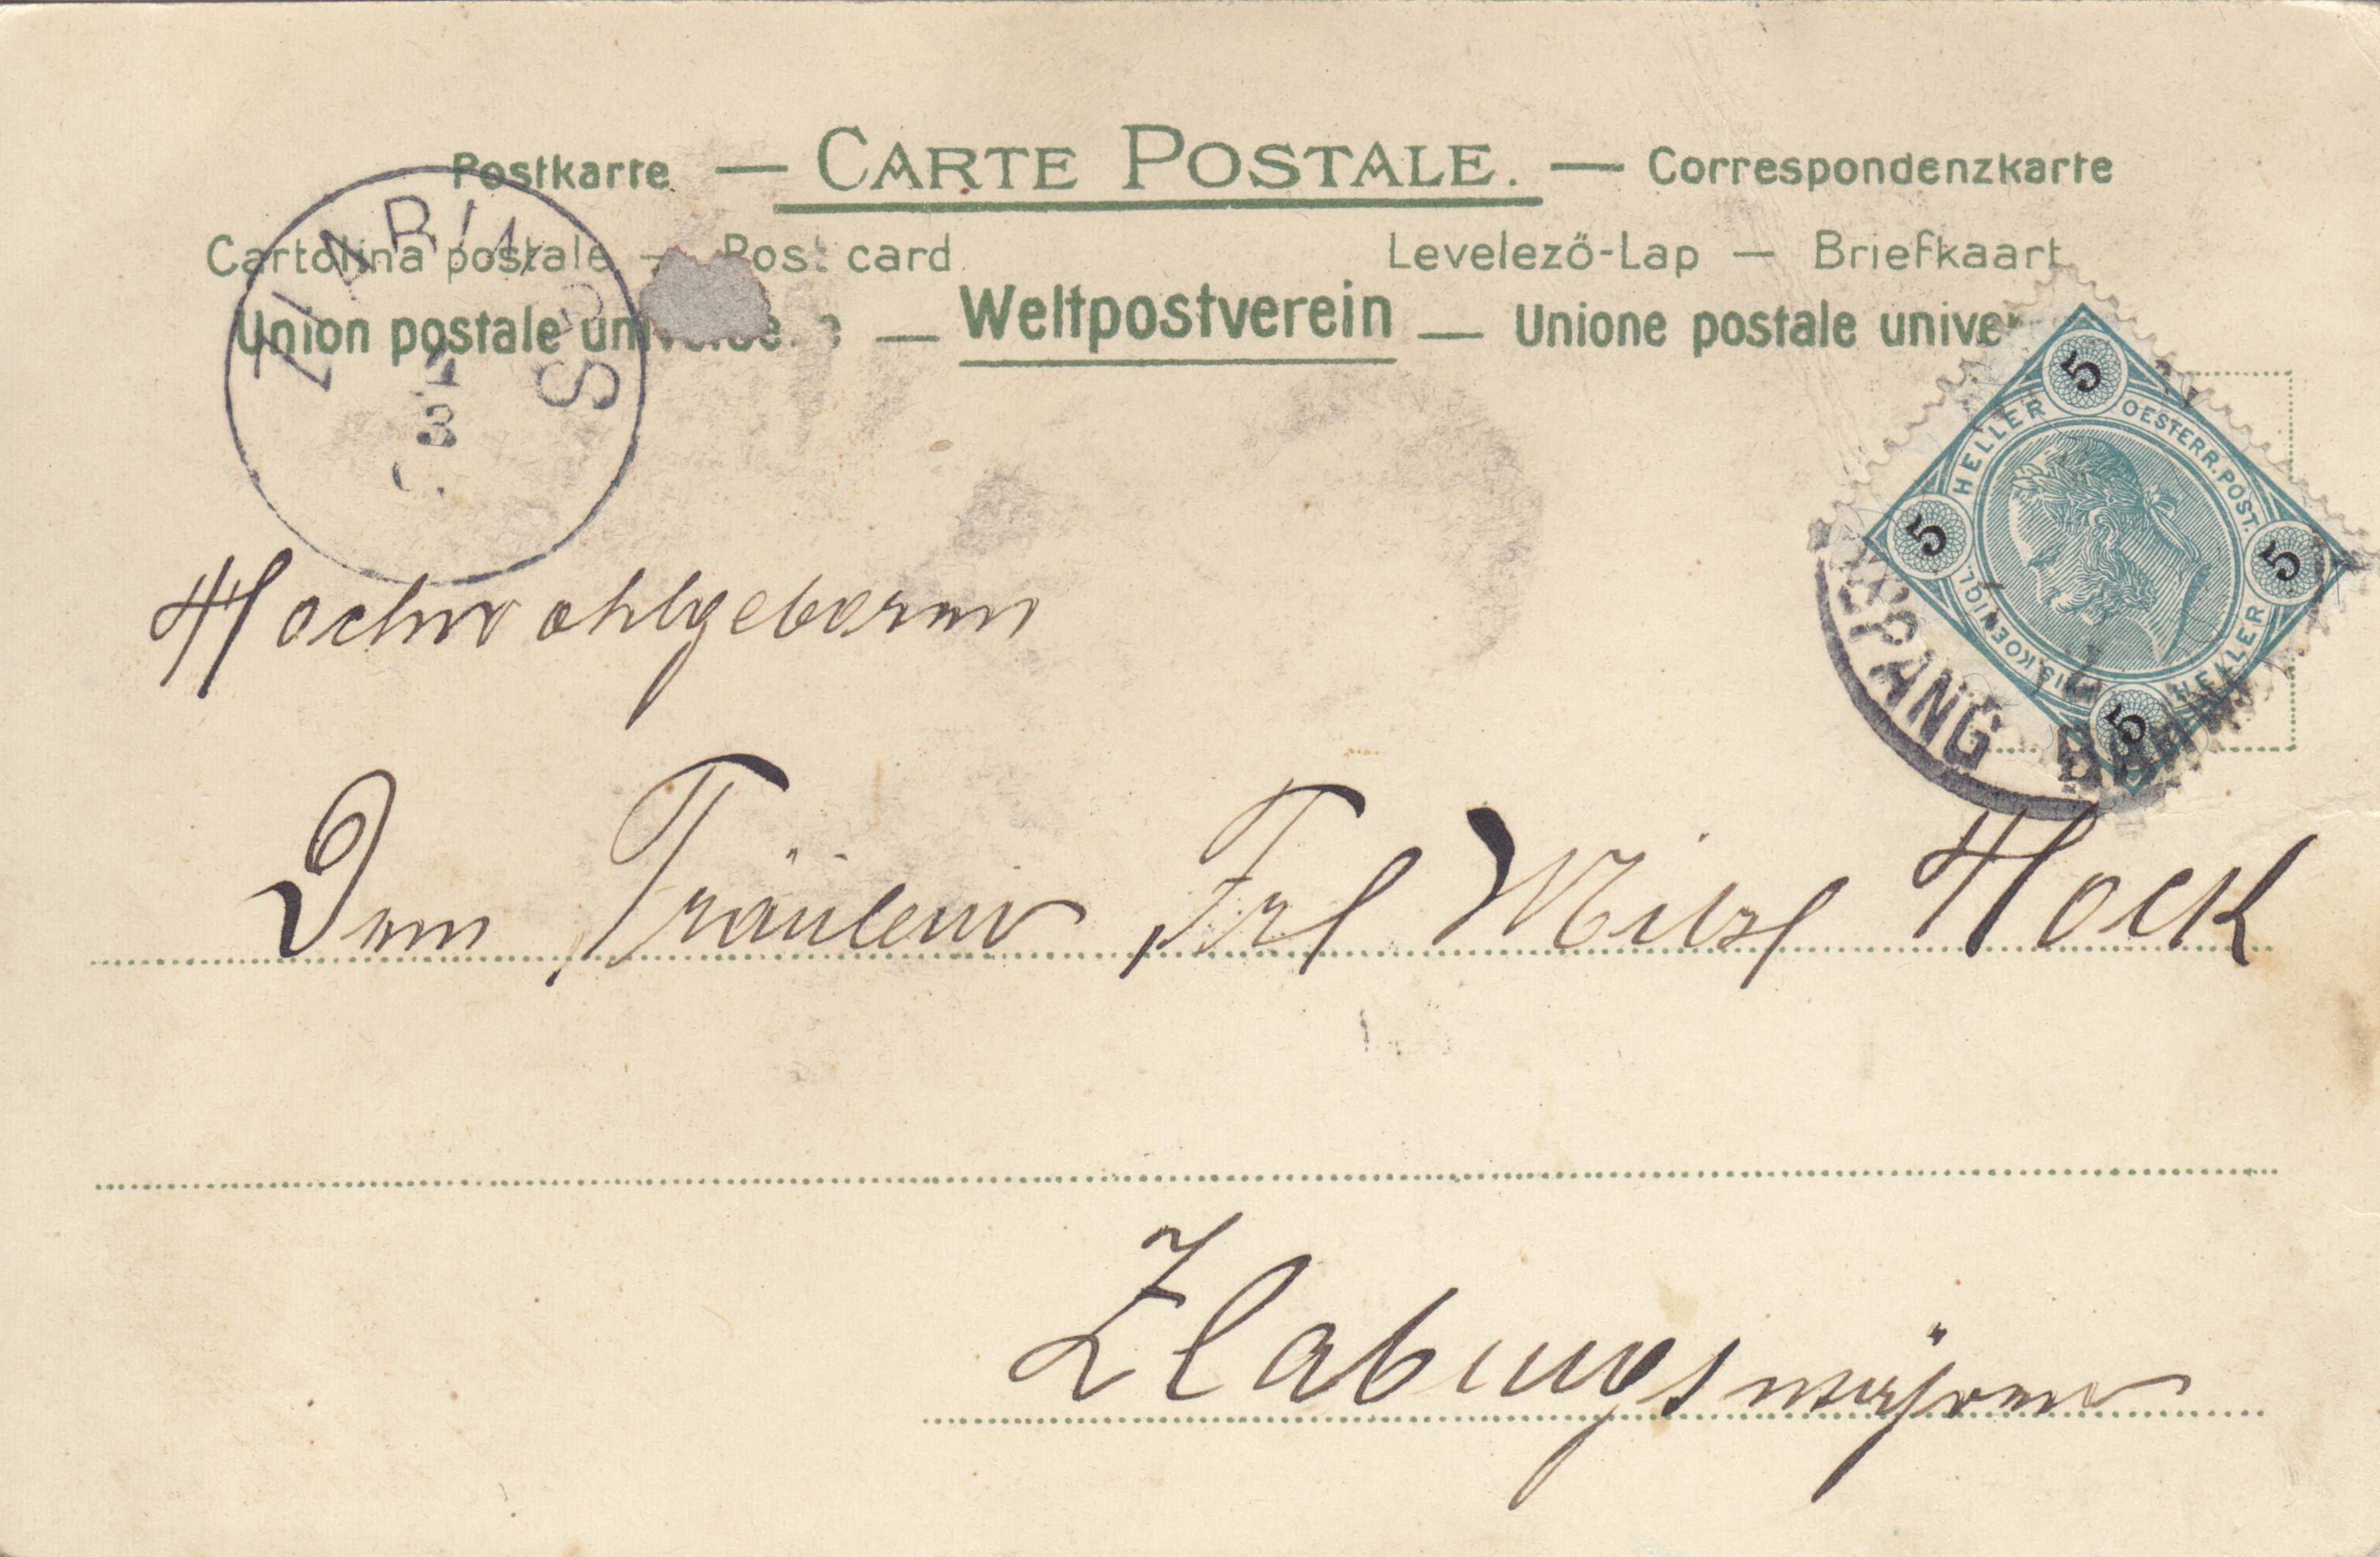 Postkarte — CARTE POSTALE. — Correspondenzkarte
Cartolina postale — Post card
Levelező-Lap — Briefkaart
Union postale — Weltpostverein — Unione postale
5 HELLER 5 OESTERR. POST. 5 HELLER 5 KOENIGL.
ASPANG
Hochwohlgeboren
Dem Fräulein, Frl Mitzl Hock
Zlabings mähren